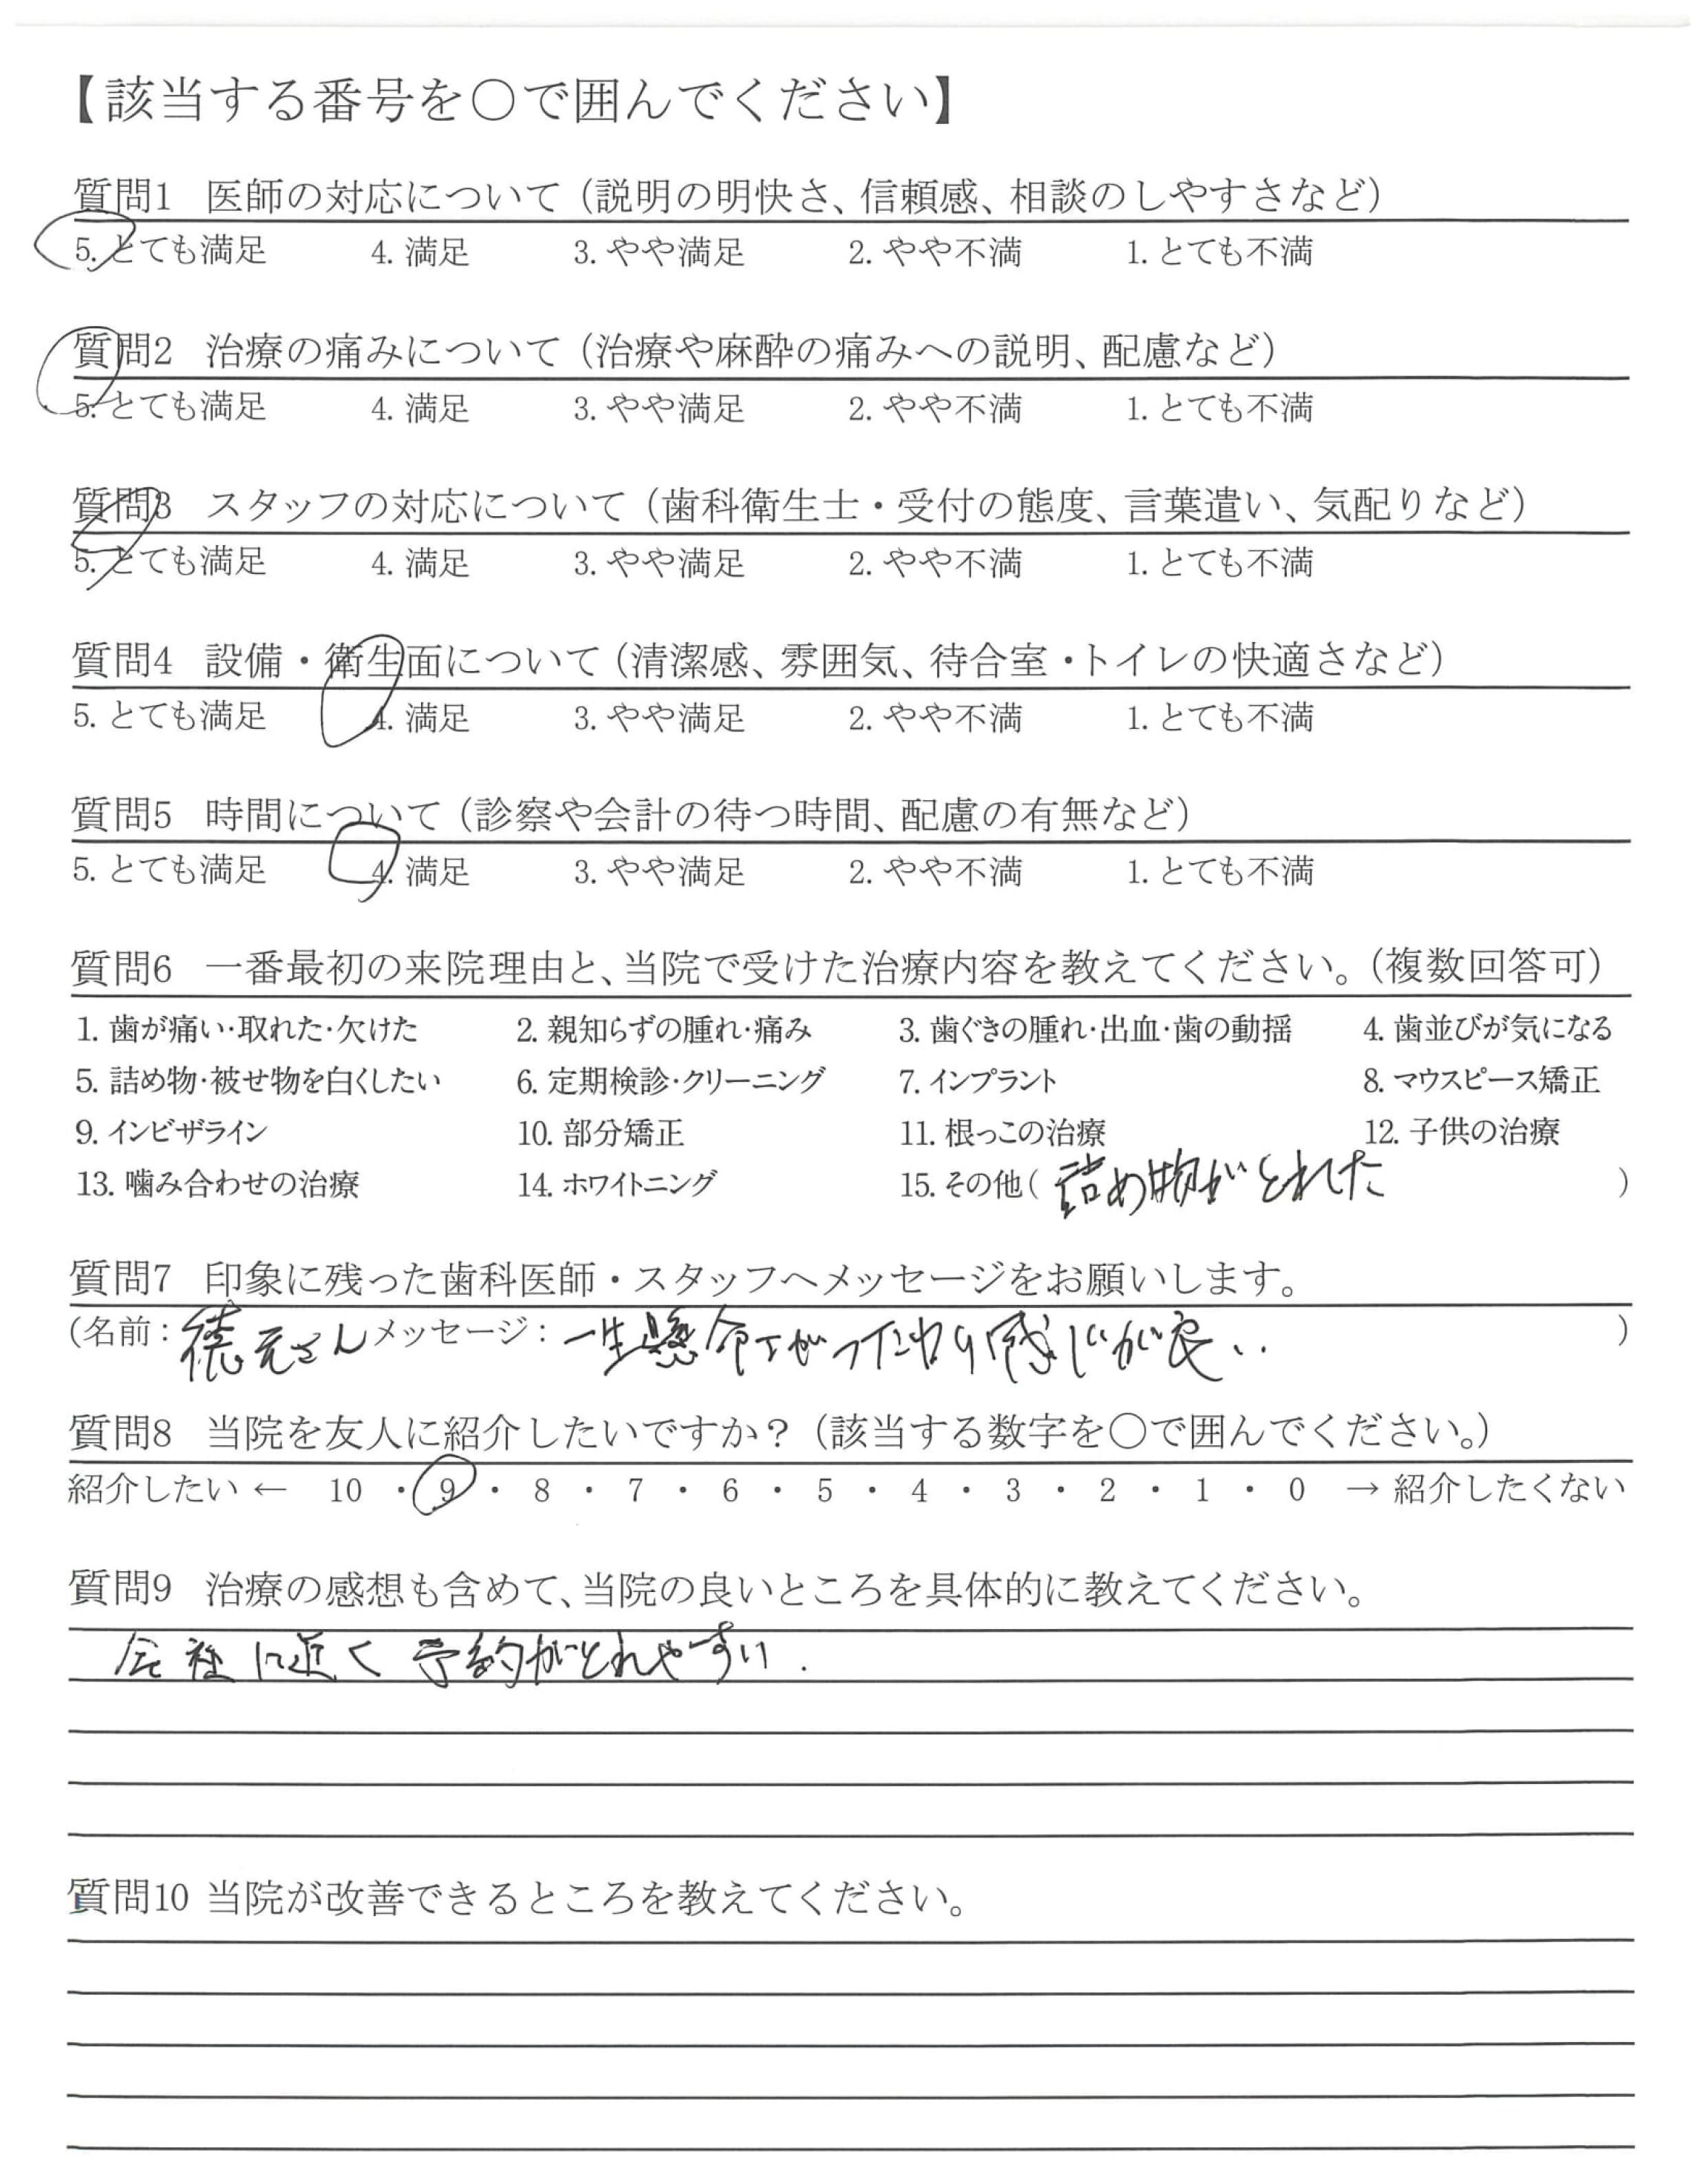 【該当する番号を〇で囲んでください】
質問1 医師の対応について（説明の明快さ、信頼感、相談のしやすさなど）
5. とても満足 4. 満足 3. やや満足 2. やや不満 1. とても不満
質問2 治療の痛みについて（治療や麻酔の痛みへの説明、配慮など）
5. とても満足 4. 満足 3. やや満足 2. やや不満 1. とても不満
質問3 スタッフの対応について（歯科衛生士・受付の態度、言葉遣い、気配りなど）
5. とても満足 4. 満足 3. やや満足 2. やや不満 1. とても不満
質問4 設備・衛生面について（清潔感、雰囲気、待合室・トイレの快適さなど）
5. とても満足 4. 満足 3. やや満足 2. やや不満 1. とても不満
質問5 時間について（診察や会計の待つ時間、配慮の有無など）
5. とても満足 4. 満足 3. やや満足 2. やや不満 1. とても不満
質問6 一番最初の来院理由と、当院で受けた治療内容を教えてください。（複数回答可）
1. 歯が痛い・取れた・欠けた 2. 親知らずの腫れ・痛み 3. 歯ぐきの腫れ・出血・歯の動揺 4. 歯並びが気になる
5. 詰め物・被せ物を白くしたい 6. 定期検診・クリーニング 7. インプラント 8. マウスピース矯正
9. インビザライン 10. 部分矯正 11. 根っこの治療 12. 子供の治療
13. 噛み合わせの治療 14. ホワイトニング 15. その他（ 詰め物がとれた ）
質問7 印象に残った歯科医師・スタッフへメッセージをお願いします。
（名前：徳元さん メッセージ：一生懸命さがつたわり感じが良い. ）
質問8 当院を友人に紹介したいですか？（該当する数字を〇で囲んでください。）
紹介したい ← 10 ・ 9 ・ 8 ・ 7 ・ 6 ・ 5 ・ 4 ・ 3 ・ 2 ・ 1 ・ 0 → 紹介したくない
質問9 治療の感想も含めて、当院の良いところを具体的に教えてください。
会社に近く 予約がとれやすい.
質問10 当院が改善できるところを教えてください。